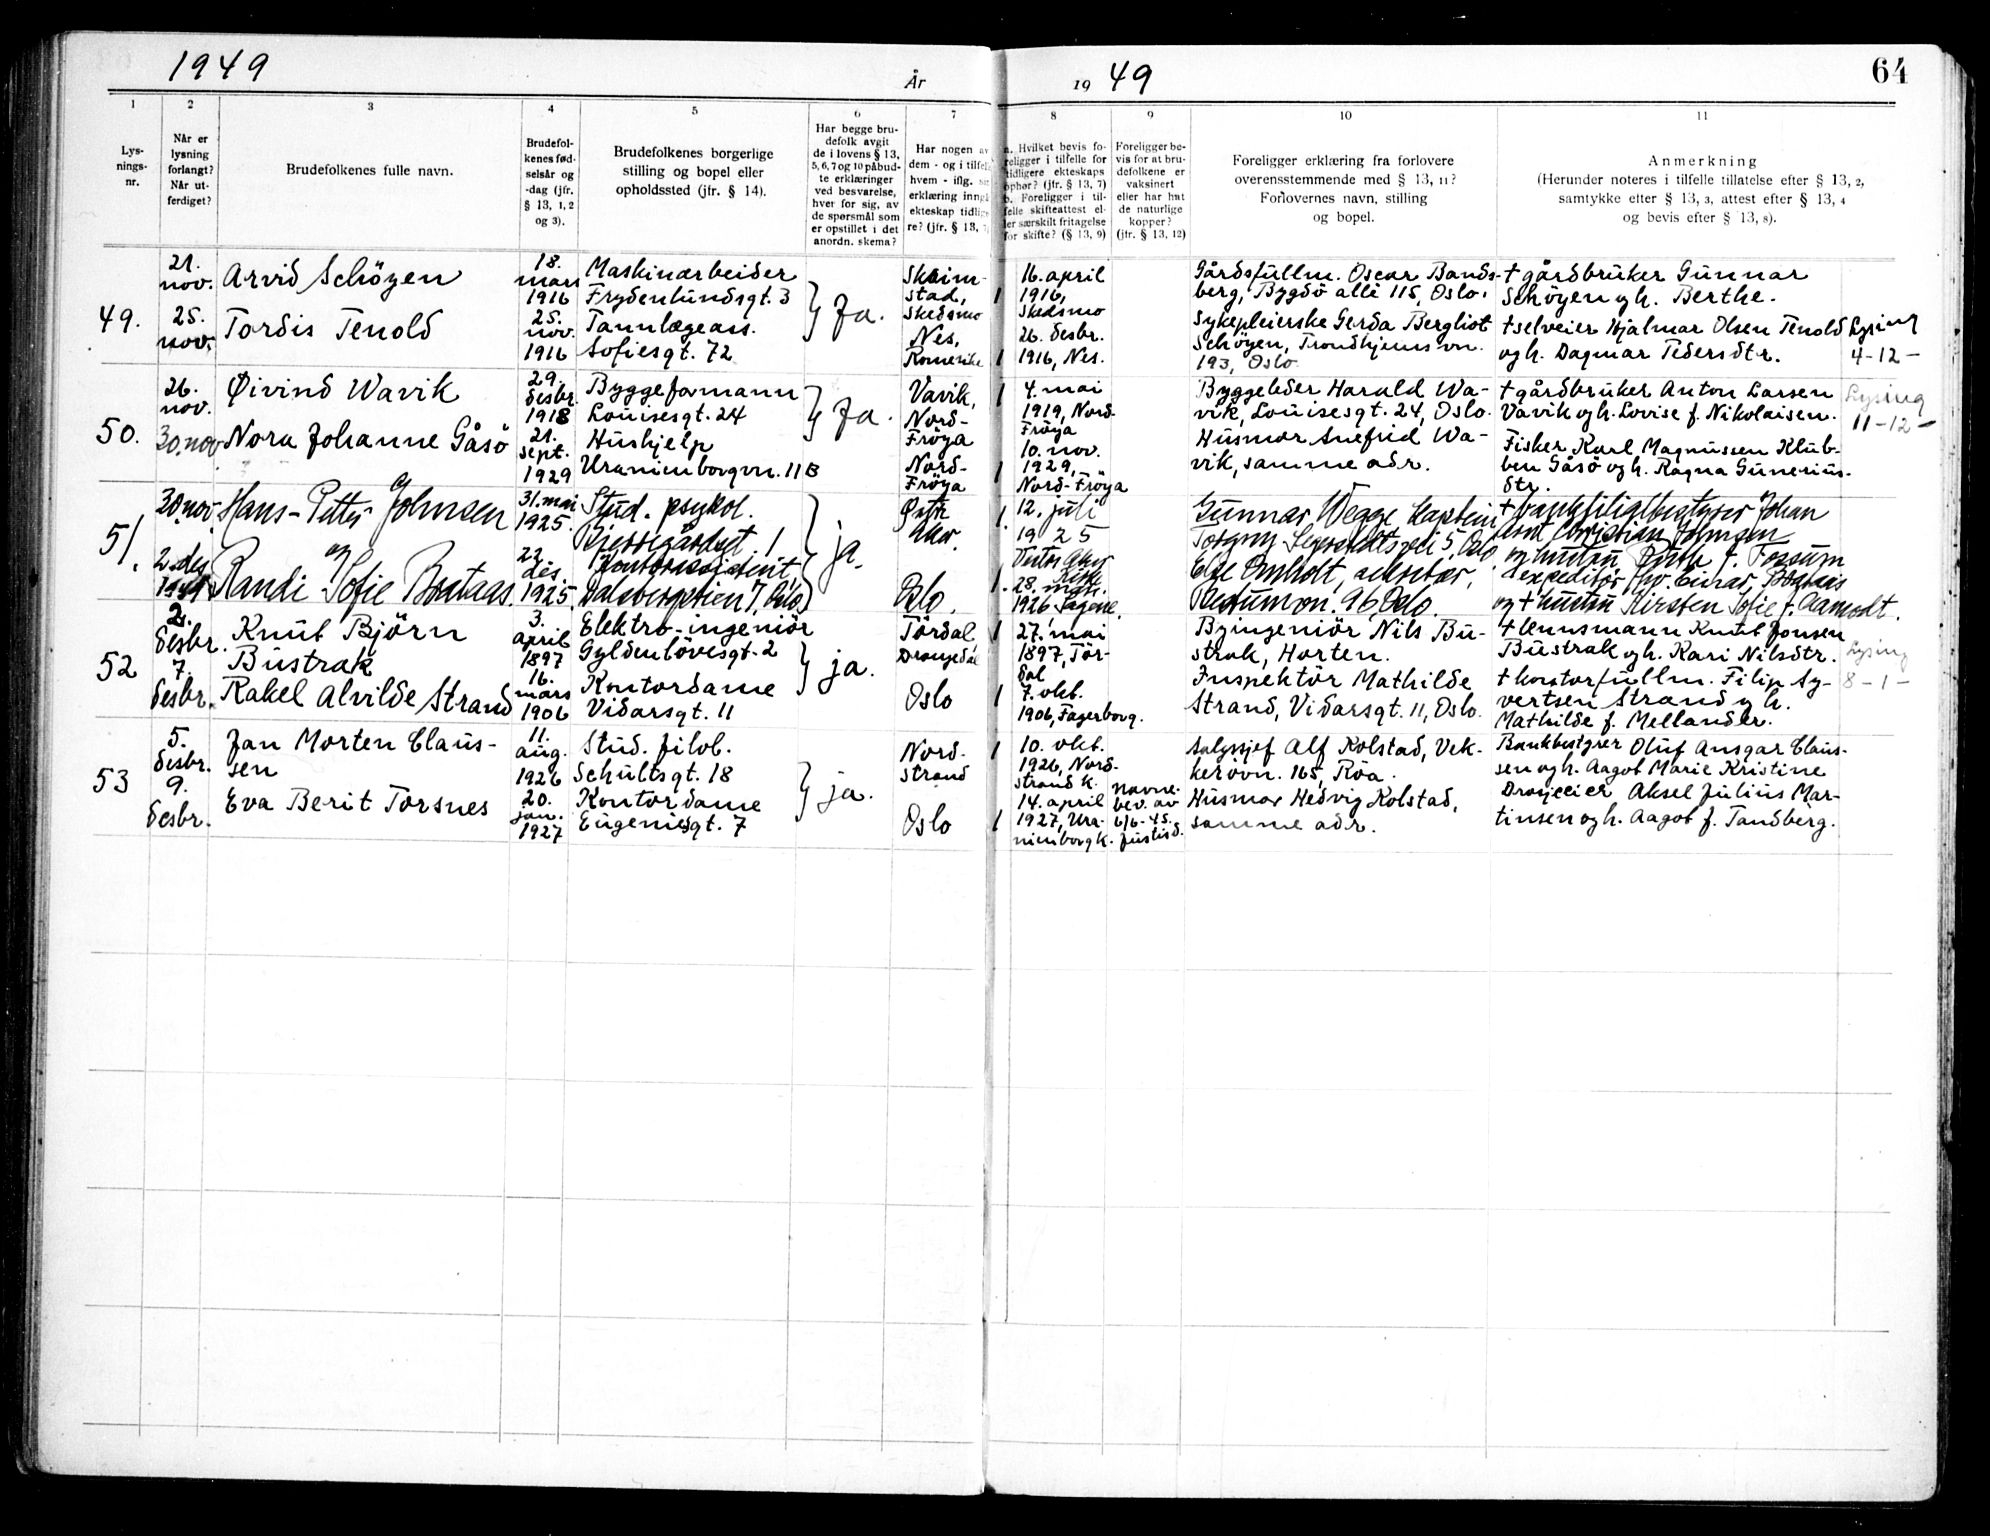 1949
År
19 49
64
1
2
3
4
5
6
7
8
9
10
11
Lys-
nings-
nr.
Når er
lysning
forlangt?
Når ut-
ferdiget?
Brudefolkenes fulle navn.
Brudefol-
kenes fød-
selsår og
-dag (jfr.
§ 13, 1, 2
og 3).
Brudefolkenes borgerlige
stilling og bopel eller
opholdssted (jfr. § 14).
Har begge bru-
defolk avgit
de i lovens § 13,
5, 6, 7 og 10 påbud-
te erklæringer
ved besvarelse,
hver for sig, av
de spørsmål som
er opstillet i det
anordn. skema?
Har nogen av
dem - og i tilfelle
hvem - iflg.
erklæring inngåt
ekteskap tidlige-
re? (jfr. § 13,
a. Hvilket bevis fo-
religger i tilfelle for
tidligere ekteskaps
ophør? (jfr. § 13, 7)
b. Foreligger i til-
felle skifteattest el-
ler særskilt fritagelse
for skifte? (§ 13, 9)
Foreligger be-
vis for at bru-
defolkene er
vaksinert
eller har hat
de naturlige
kopper?
(jfr. § 13, 12)
Foreligger erklæring fra forlovere
overensstemmende med § 13, 11?
Forlovernes navn, stilling
og bopel.
Anmerkning
(Herunder noteres i tilfelle tillatelse efter § 13, 2,
samtykke efter § 13, 3, attest efter § 13, 4
og bevis efter § 13, 8).
49.
21.
nov.
25.
nov.
Arvid Schöyen
Tordis Tenold
18.
mars
1916
25.
nov.
1916
Maskinarbeider
Frydenlundsgt. 3
Tannlægeass.
Sofiesgt. 72
Ja.
stad,
Skedsmo
Nes,
Romerike
16. april
1916,
Skedsmo
26. desbr.
1916, Nes.
Gårdsfullm. Oscar Bands-
berg, Bygdö allé 115, Oslo.
Sykepleierske Gerda Bergliot
Schöyen, Trondhjemsvn.
193, Oslo
† gårdbruker Gunnar
Schöyen og h. Berthe.
† selveier Hjalmar Olsen Tenold
og h. Dagmar Pedersdtr.
Lysing
4-12-
50.
26.
nov.
30. nov
Øivind Wavik
Nora Johanne Gåsö
29.
desbr.
1918
21.
sept.
1929
Byggeformann
Louisesgt. 24
Hushjelp
Uranienborgvn. 11 B
Ja.
Vavik,
Nord-
Fröya
Nord-
Fröya
4. mai
1919, Nord-
Fröya
10. nov.
1929,
Nord-Fröya
Byggeleder Harald Wa-
vik, Louisesgt. 24, Oslo.
Husmor Anefrid Wa-
vik, samme adr.
† gårdbruker Anton Larsen
Vavik og h. Lovise f. Nikolaisen.
Fisker Karl Magnussen Klub-
ben Gåsö og h. Ragna Gunerius-
dtr.
Lysing
11-12-
51.
30. nov
2. des
1949
Hans-Petter Johnsen
og
Randi Sofie Braataas.
31. mai
1925.
22.
des.
1925.
Stud. psykol.
Kontorassistent,
Dalsbergstien 7, Oslo
ja.
Østre
Aker.
Oslo.
12. juli
1925
Vestre Aker
28. mars
1926, Sagene.
Gunnar Wegge kaptein
Torgny Segerstedts vei 5, Oslo.
Else Omholt, sekretær,
96, Oslo.
† bankfilialbestyrer Johan
Christian Johnsen
og hustru Ruth f. Fossum
ekspeditör Einar Braataas
og † hustru Kirsten Sofie f. Aamodt.
52
2.
desbr.
7.
desbr.
Knut Björn
Bustrak
Rakel Alvilde Strand
3.
april
1897
16.
mars
1906
Elektro-ingeniör
Gyldenlövesgt. 2
Kontordame
Vidarsgt. 11
ja.
Tördal,
Drangedal
Oslo
27. mai
1897, Tör-
dal
7. okt.
1906, Fagerborg.
Byingeniör Nils Bu-
strak, Horten.
Inspektör Mathilde
Strand, Vidarsgt. 11, Oslo.
† lennsmann Knut Jonsen
Bustrak og h. Kari Nilsdtr.
† kontorfullm. Filip Sy-
vertsen Strand og h.
Mathilde f. Mellander.
Lysing
8-1-
53
5.
desbr.
9.
desbr.
Jan Morten Claus-
sen
Eva Berit Torsnes
11.
aug.
1926
20.
jan.
1927
Stud. filol.
Schultzgt. 18
Kontordame
Eugeniesgt. 7
ja.
Nord-
strand
Oslo
10. okt.
1926, Nord-
strand k.
14. april
1927, Ura-
nienborg k.
navne-
bev. av
6/6-45.
Justisd.
Salgssjef Alf Kolstad, Vek-
kerövn. 165, Röa.
Husmor Hedvig Kolstad,
samme adr.
Bankbestyrer Oluf Ansgar Claus-
sen og h. Aagot Marie Kristine
Drosjeeier Aksel Julius Mar-
tinsen og h. Aagot f. Tandberg.